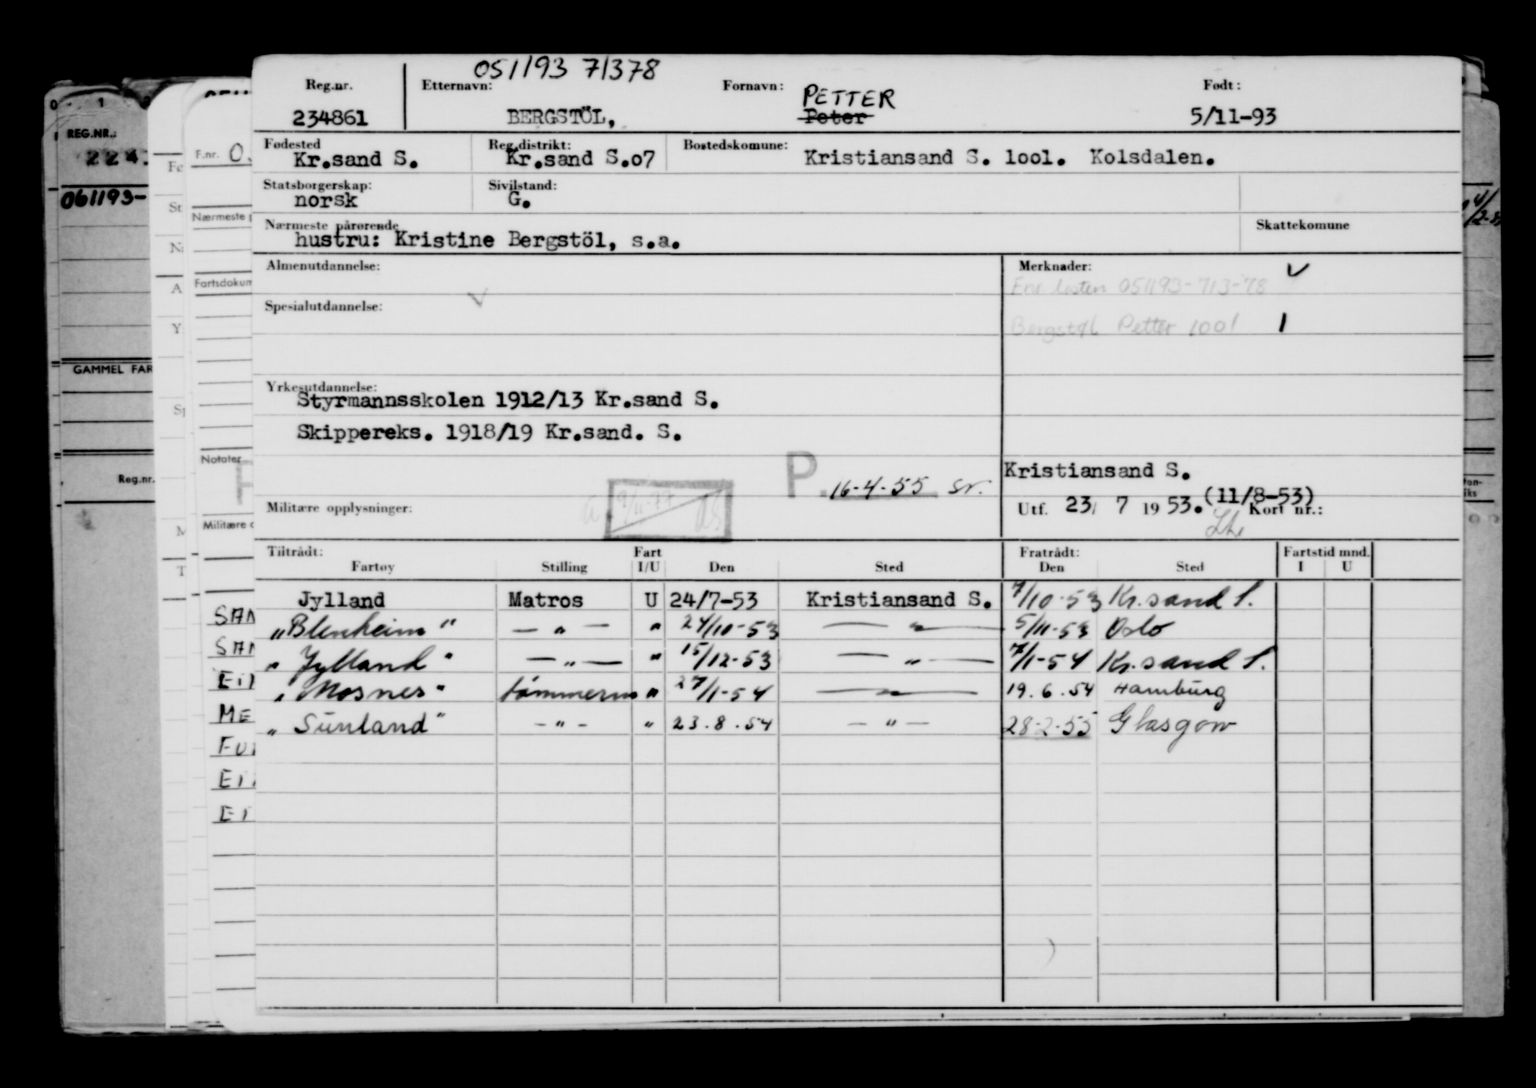 051193 71378
Reg.nr. Etternavn: Fornavn: Født:
PETTER
234861 BERGSTÖL, Peter 5/11-93
Fødested Reg.distrikt: Bostedskomune:
Kr.sand S. Kr.sand S.o7 Kristiansand S. 1oo1. Kolsdalen.
Statsborgerskap: Sivilstand:
norsk G.
Nærmeste pårørende Skattekomune
hustru: Kristine Bergstöl, s.a.
Almenutdannelse: Merknader:
051193-713-78
Spesialutdannelse:
Bergstøl Petter 1001
Yrkesutdannelse:
Styrmannsskolen 1912/13 Kr.sand S.
Skippereks. 1918/19 Kr.sand. S.
P. 16-4-55 sr. Kristiansand S.
Militære opplysninger: Utf. 23/ 7 1953. (11/8-53) Kort nr.:
Tiltrådt: Fart Fratrådt: Fartstid mnd.
Fartøy Stilling I/U Den Sted Den Sted I U
Jylland Matros U 24/7-53 Kristiansand S. 7/10-53 Kr.sand S.
"Blenheim" — " — " 24/10-53 — " — 5/11-53 Oslo
"Jylland" — " — " 15/12-53 — " — 7/1-54 Kr.sand S.
"Mosnes" tömmerm " 27/1-54 — " — 19.6.54 Hamburg
"Sunland" - " - " 23.8.54 — " — 28-2-55 Glasgow
REG.NR.:
224
061193-
GAMMEL FAR
Reg.nr.
F.nr. 0
Nærmeste
Fartsdokum
Notater
Militære
SAN
SAN
ME